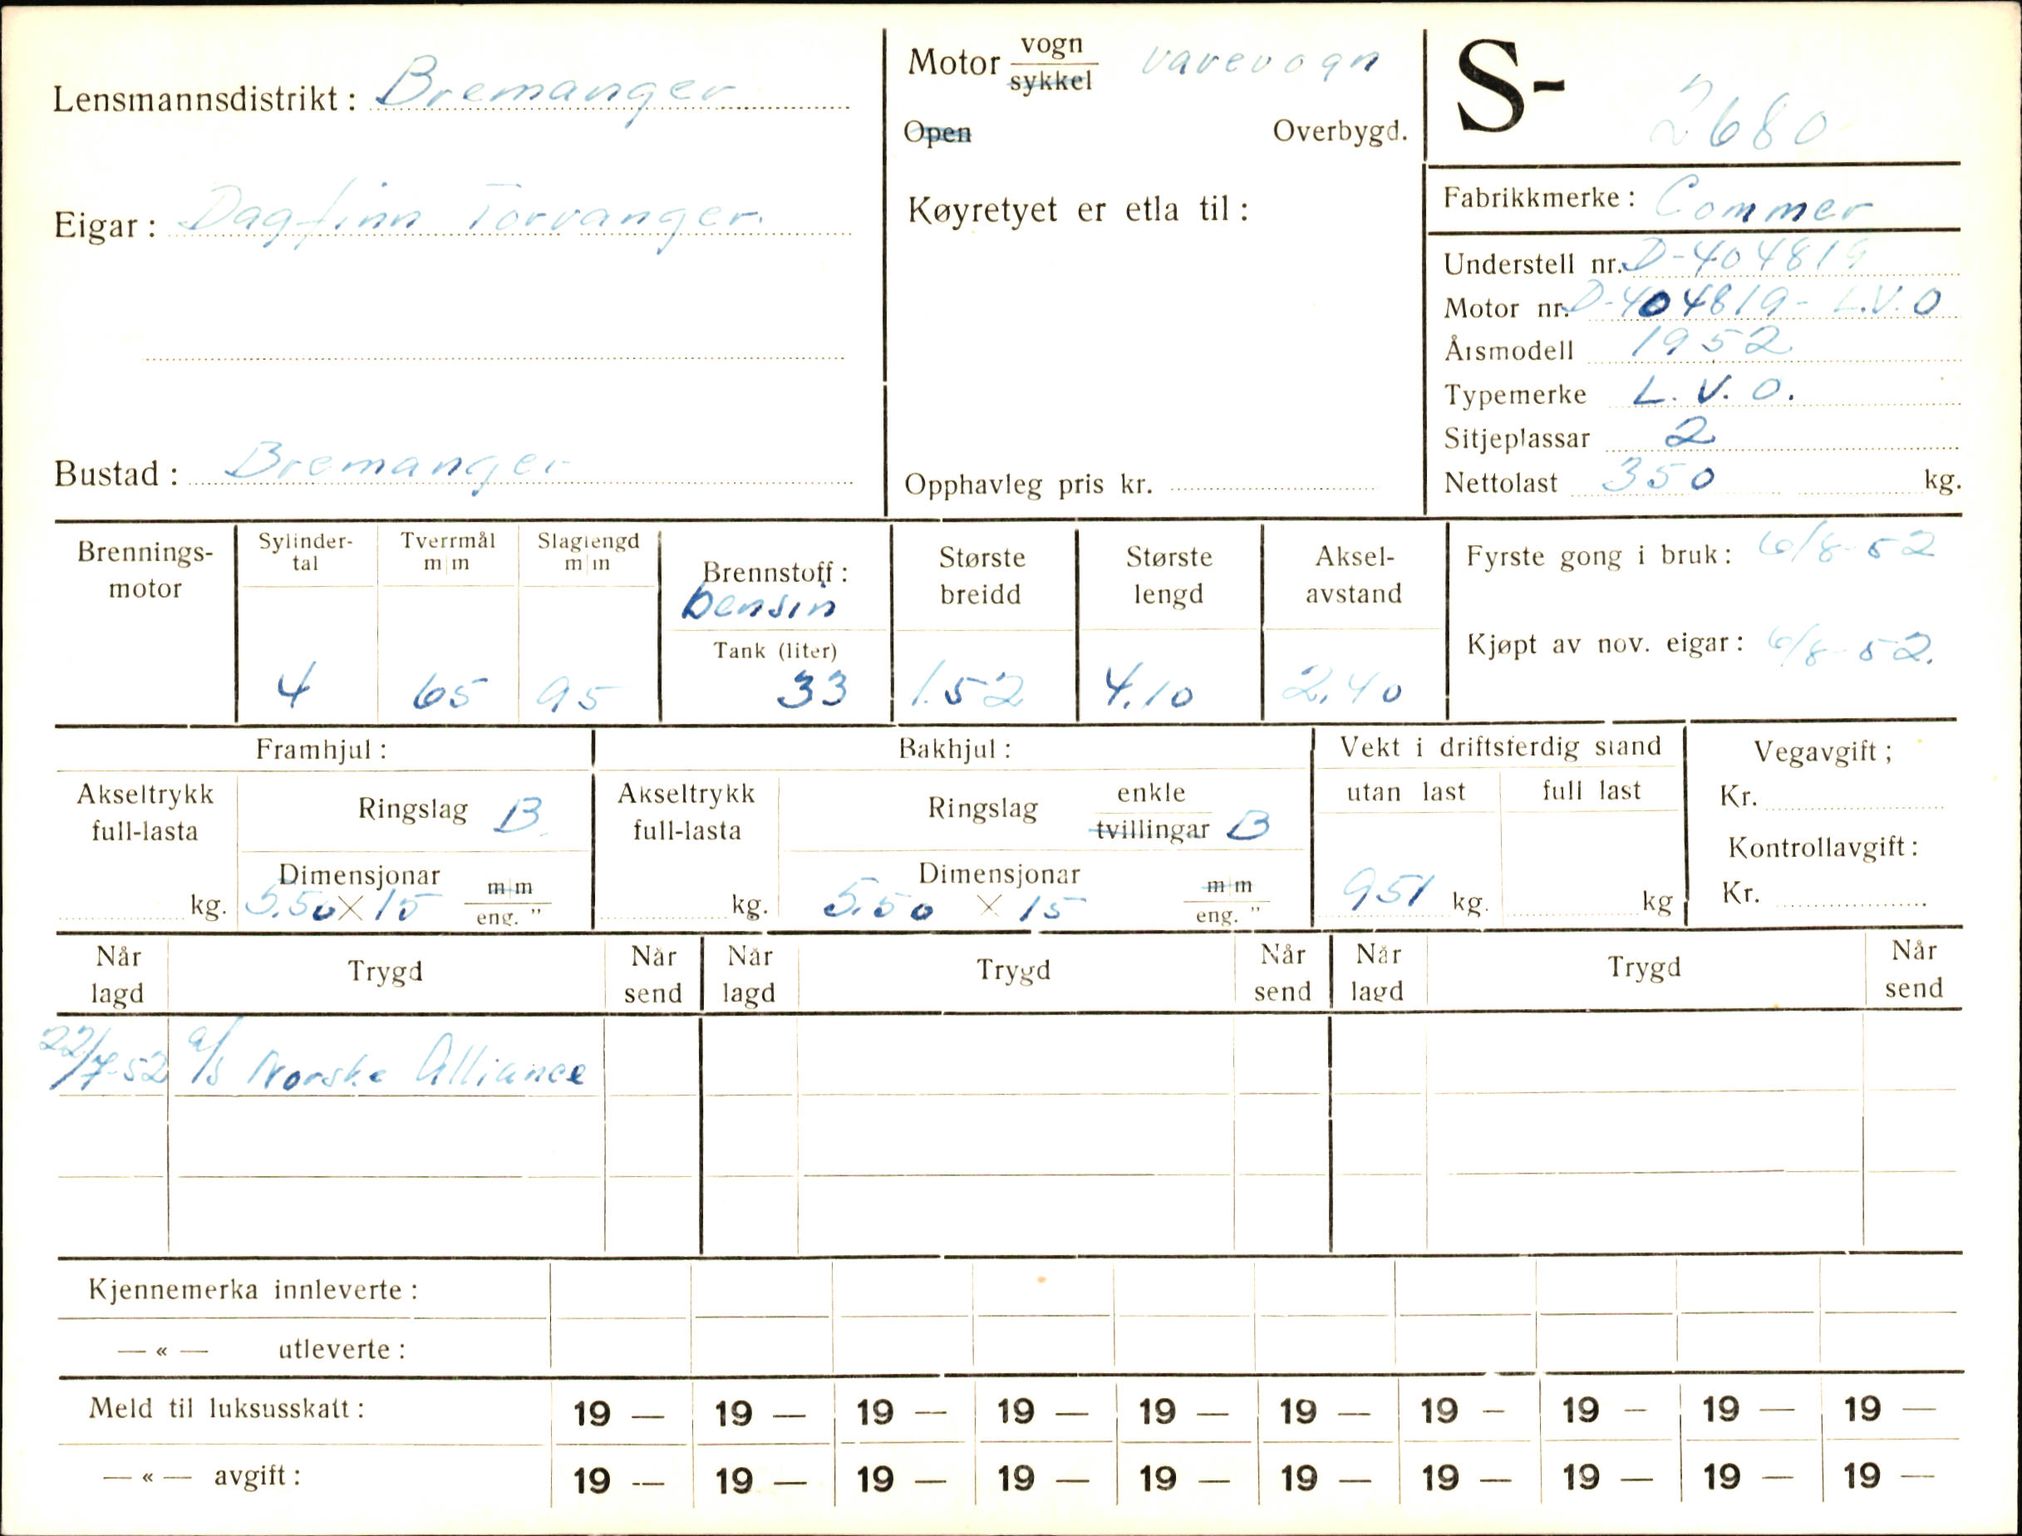 Lensmannsdistrikt: Bremanger
Eigar: Dagfinn Torvanger.
Bustad: Bremanger
Motor vogn varevogn
sykkel
Open Overbygd.
Køyretyet er etla til:
Opphavleg pris kr.
S- 2680
Fabrikkmerke: Commer
Understell nr. D-404819
Motor nr. D-404819- L.V.O
Årsmodell 1952
Typemerke L.V.O.
Sitjeplassar 2
Nettolast 350 kg.
Brennings-
motor
Sylinder-
tal
4
Tverrmål
m|m
65
Slaglengd
m|m
95
Brennstoff:
bensin
Tank (liter)
33
Største
breidd
1.52
Største
lengd
4.10
Aksel-
avstand
2.40
Fyrste gong i bruk: 6/8-52
Kjøpt av nov. eigar: 6/8-52.
Framhjul:
Akseltrykk
full-lasta
kg.
Ringslag B.
Dimensjonar m|m
5.50 X 15 eng. "
Bakhjul:
Akseltrykk
full-lasta
kg.
Ringslag enkle
tvillingar B
Dimensjonar m|m
5.50 X 15 eng. "
Vekt i driftsferdig stand
utan last full last
951 kg. kg
Vegavgift;
Kr.
Kontrollavgift:
Kr.
Når
lagd Trygd Når
send Når
lagd Trygd Når
send Når
lagd Trygd Når
send
22/7-52 a/s Norske Alliance
Kjennemerka innleverte:
— « — utleverte:
Meld til luksusskatt: 19 — 19 — 19 — 19 — 19 — 19 — 19 — 19 — 19 — 19 —
— « — avgift: 19 — 19 — 19 — 19 — 19 — 19 — 19 — 19 — 19 — 19 —